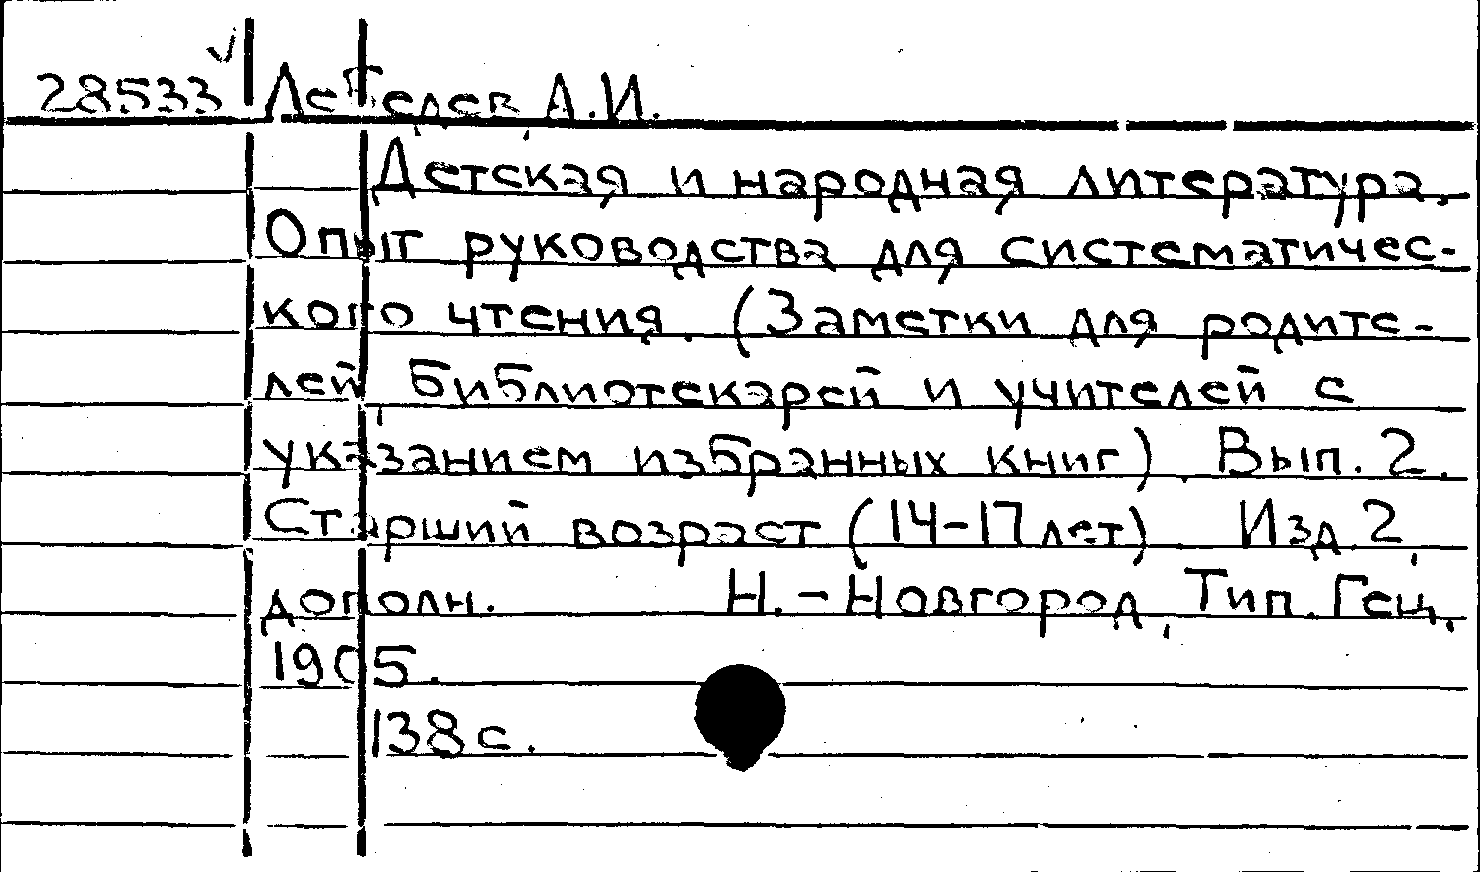 28533 Лебедев, А.И.
Детская и народная литература.
Опыт руководства для систематичес-
кого чтения. (Заметки для родите-
лей, библиотекарей и учителей с
указанием избранных книг). Вып. 2.
Старший возраст (14-17 лет). Изд. 2,
дополн. Н.-Новгород, Тип. Гец,
1905.
138 с.